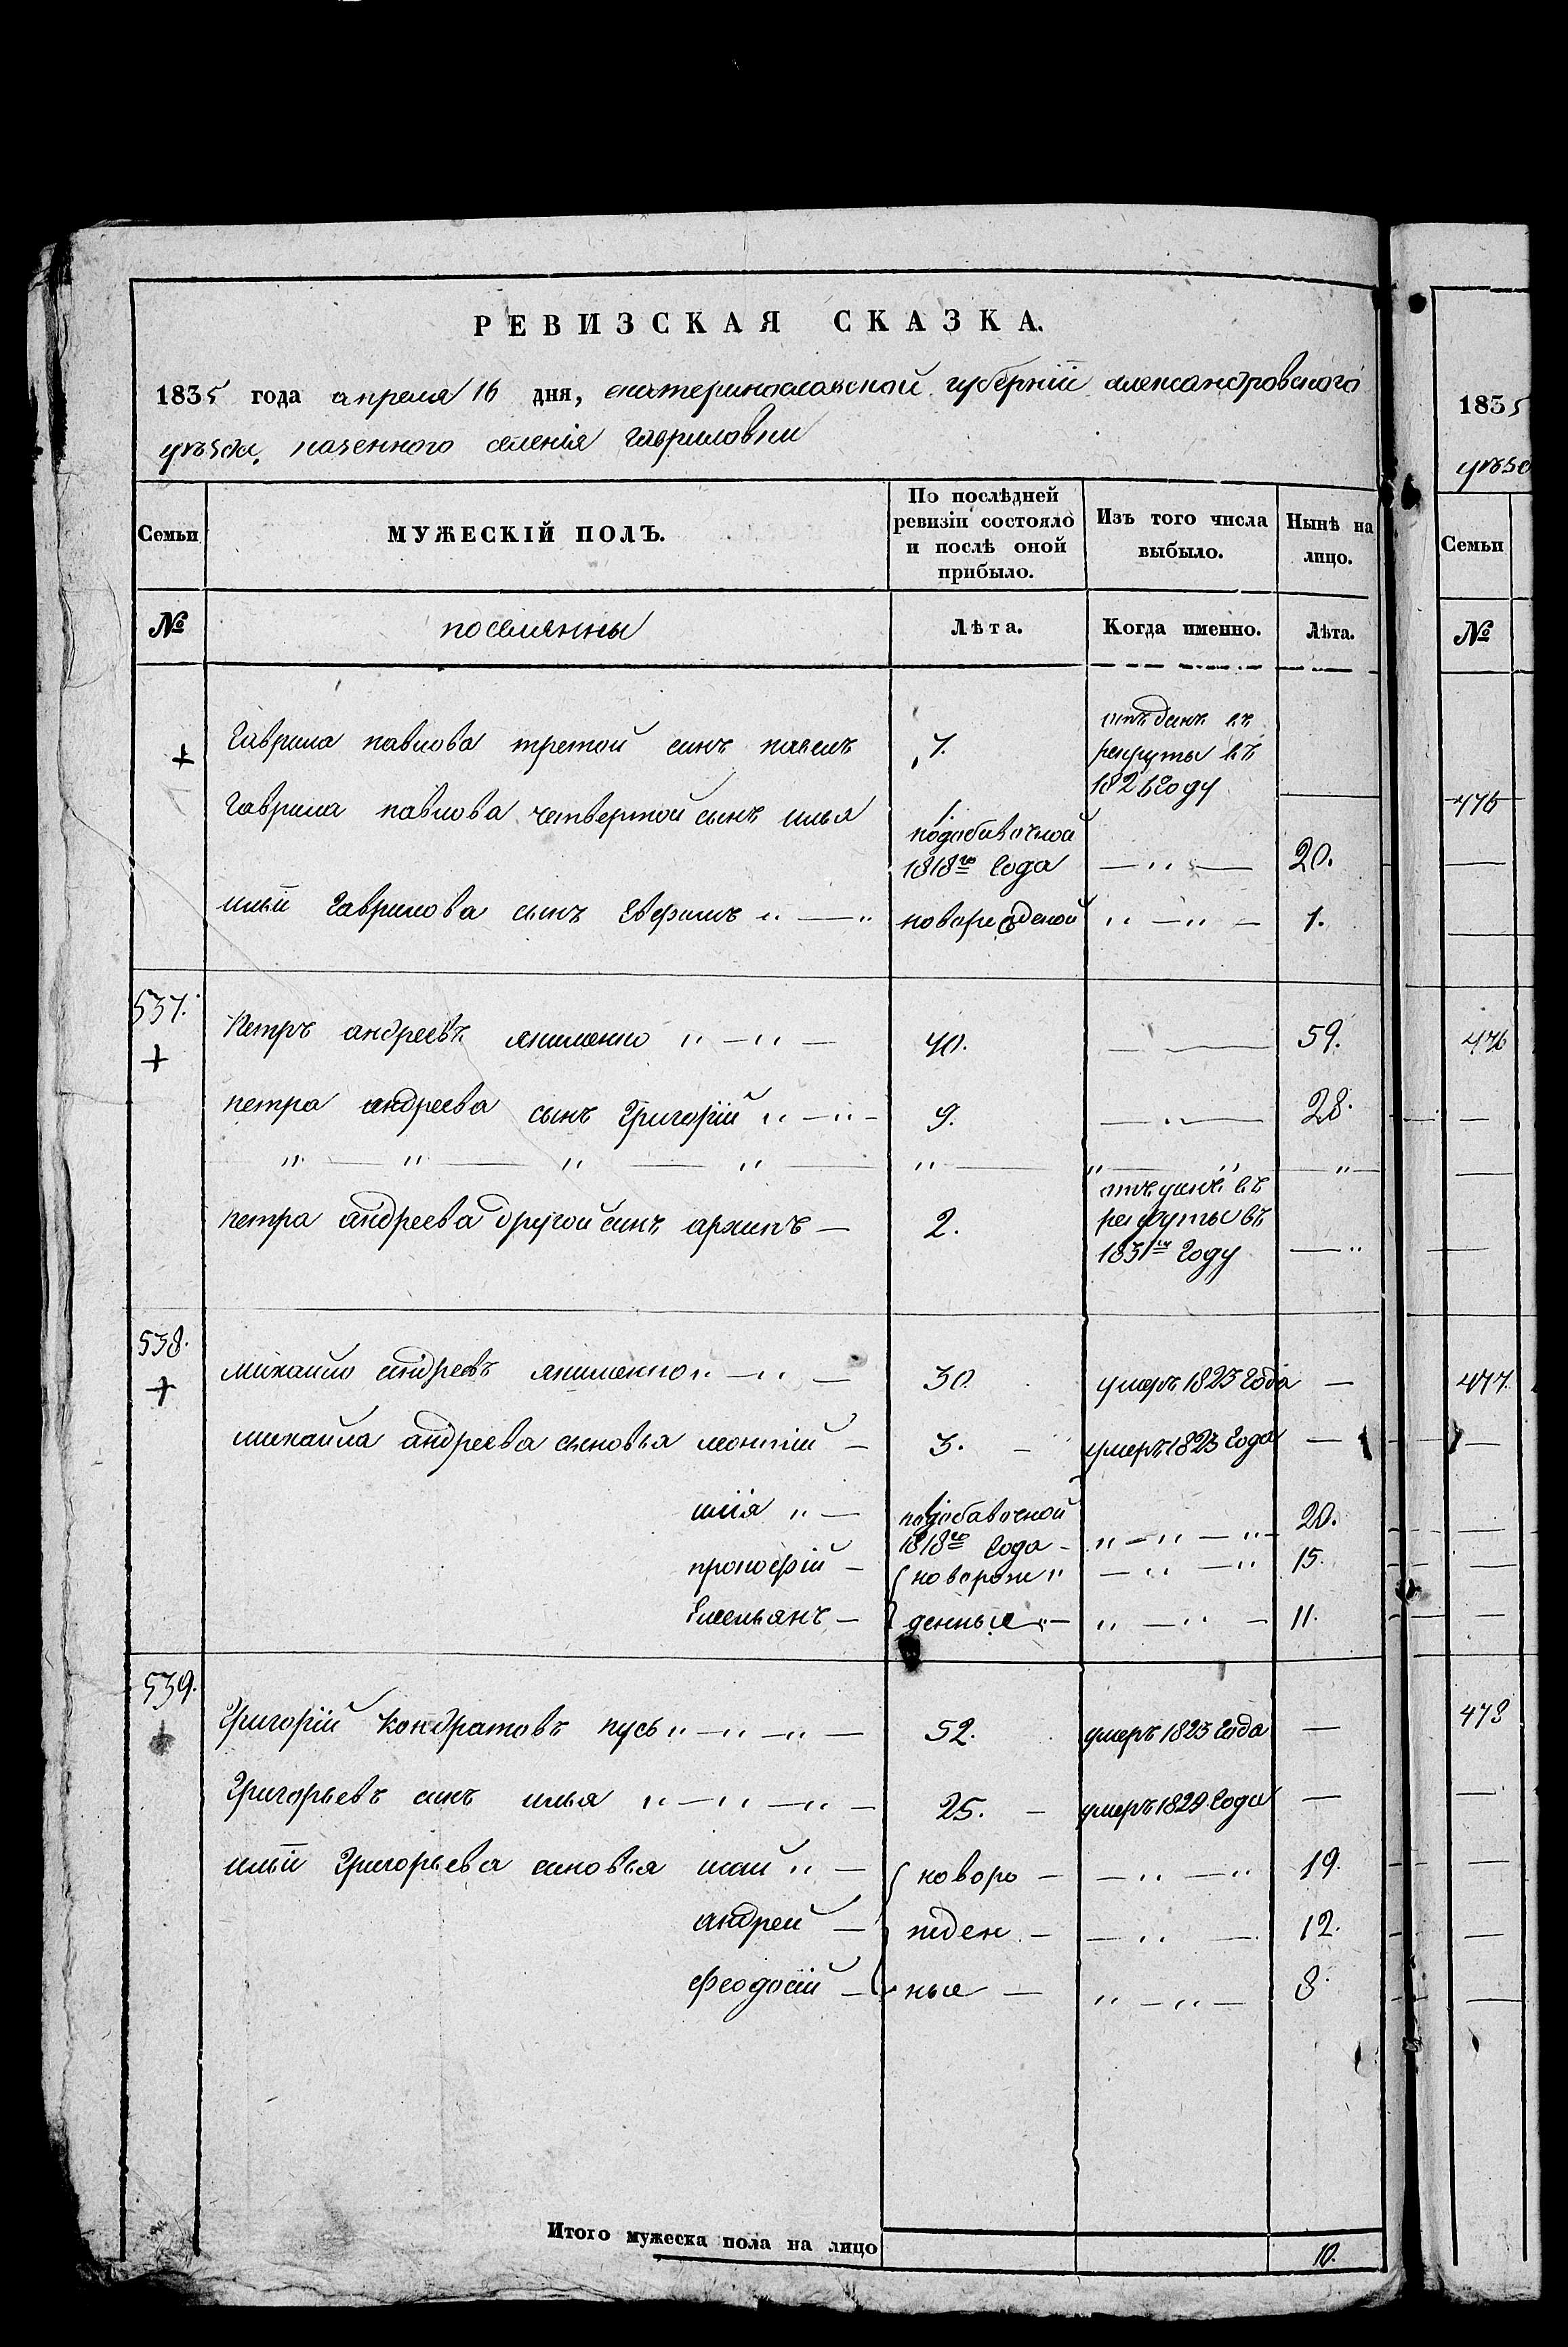 РЕВИЗСКАЯ СКАЗКА.
1835 года апреля 16 дня, екатеринославской губернiи александровского
уѣзда, казенного селенiя Гавриловки
Семьи
МУЖЕСКІЙ ПОЛЪ.
По послѣдней ревизіи состояло и послѣ оной прибыло.
Изъ того числа выбыло.
Нынѣ на лицо.
№
поселянны
Лѣта.
Когда именно.
Лѣта.
Гаврила павлова третой синъ павелъ 7. отъданъ въ рекруты въ 182 году
Гаврила павлова четвертой сынъ илья 1. подобавочной 1818го года 20.
илыи Гаврилова сынъ Евфимъ новорожденой 1.
537.
Петръ андреевъ якименко 40. 59.
петра андреева сынъ Григорiй 9. 28.
петра андреева другой синъ архипъ 2. рекруты въ 1831м году
538.
михайло андреевъ якименко 30. умеръ 1823 года
михайла андреева сыновья леонтiй 3. умеръ 1823 года
илiя подобавочной 1818го года 20.
прокофiй новорож 15.
Емельянъ денные 11.
539.
Григорiй Кондратовъ пусь 52. умеръ 1823 года
Григорьевъ синъ илья 25. умеръ 1829 года
илыи Григорьева синовья новоро 19.
андрей жден 12.
феодосiй ные 8.
Итого мужеска пола на лицо 10.
1835
уѣзд
Семьи
№
475
476
477.
478